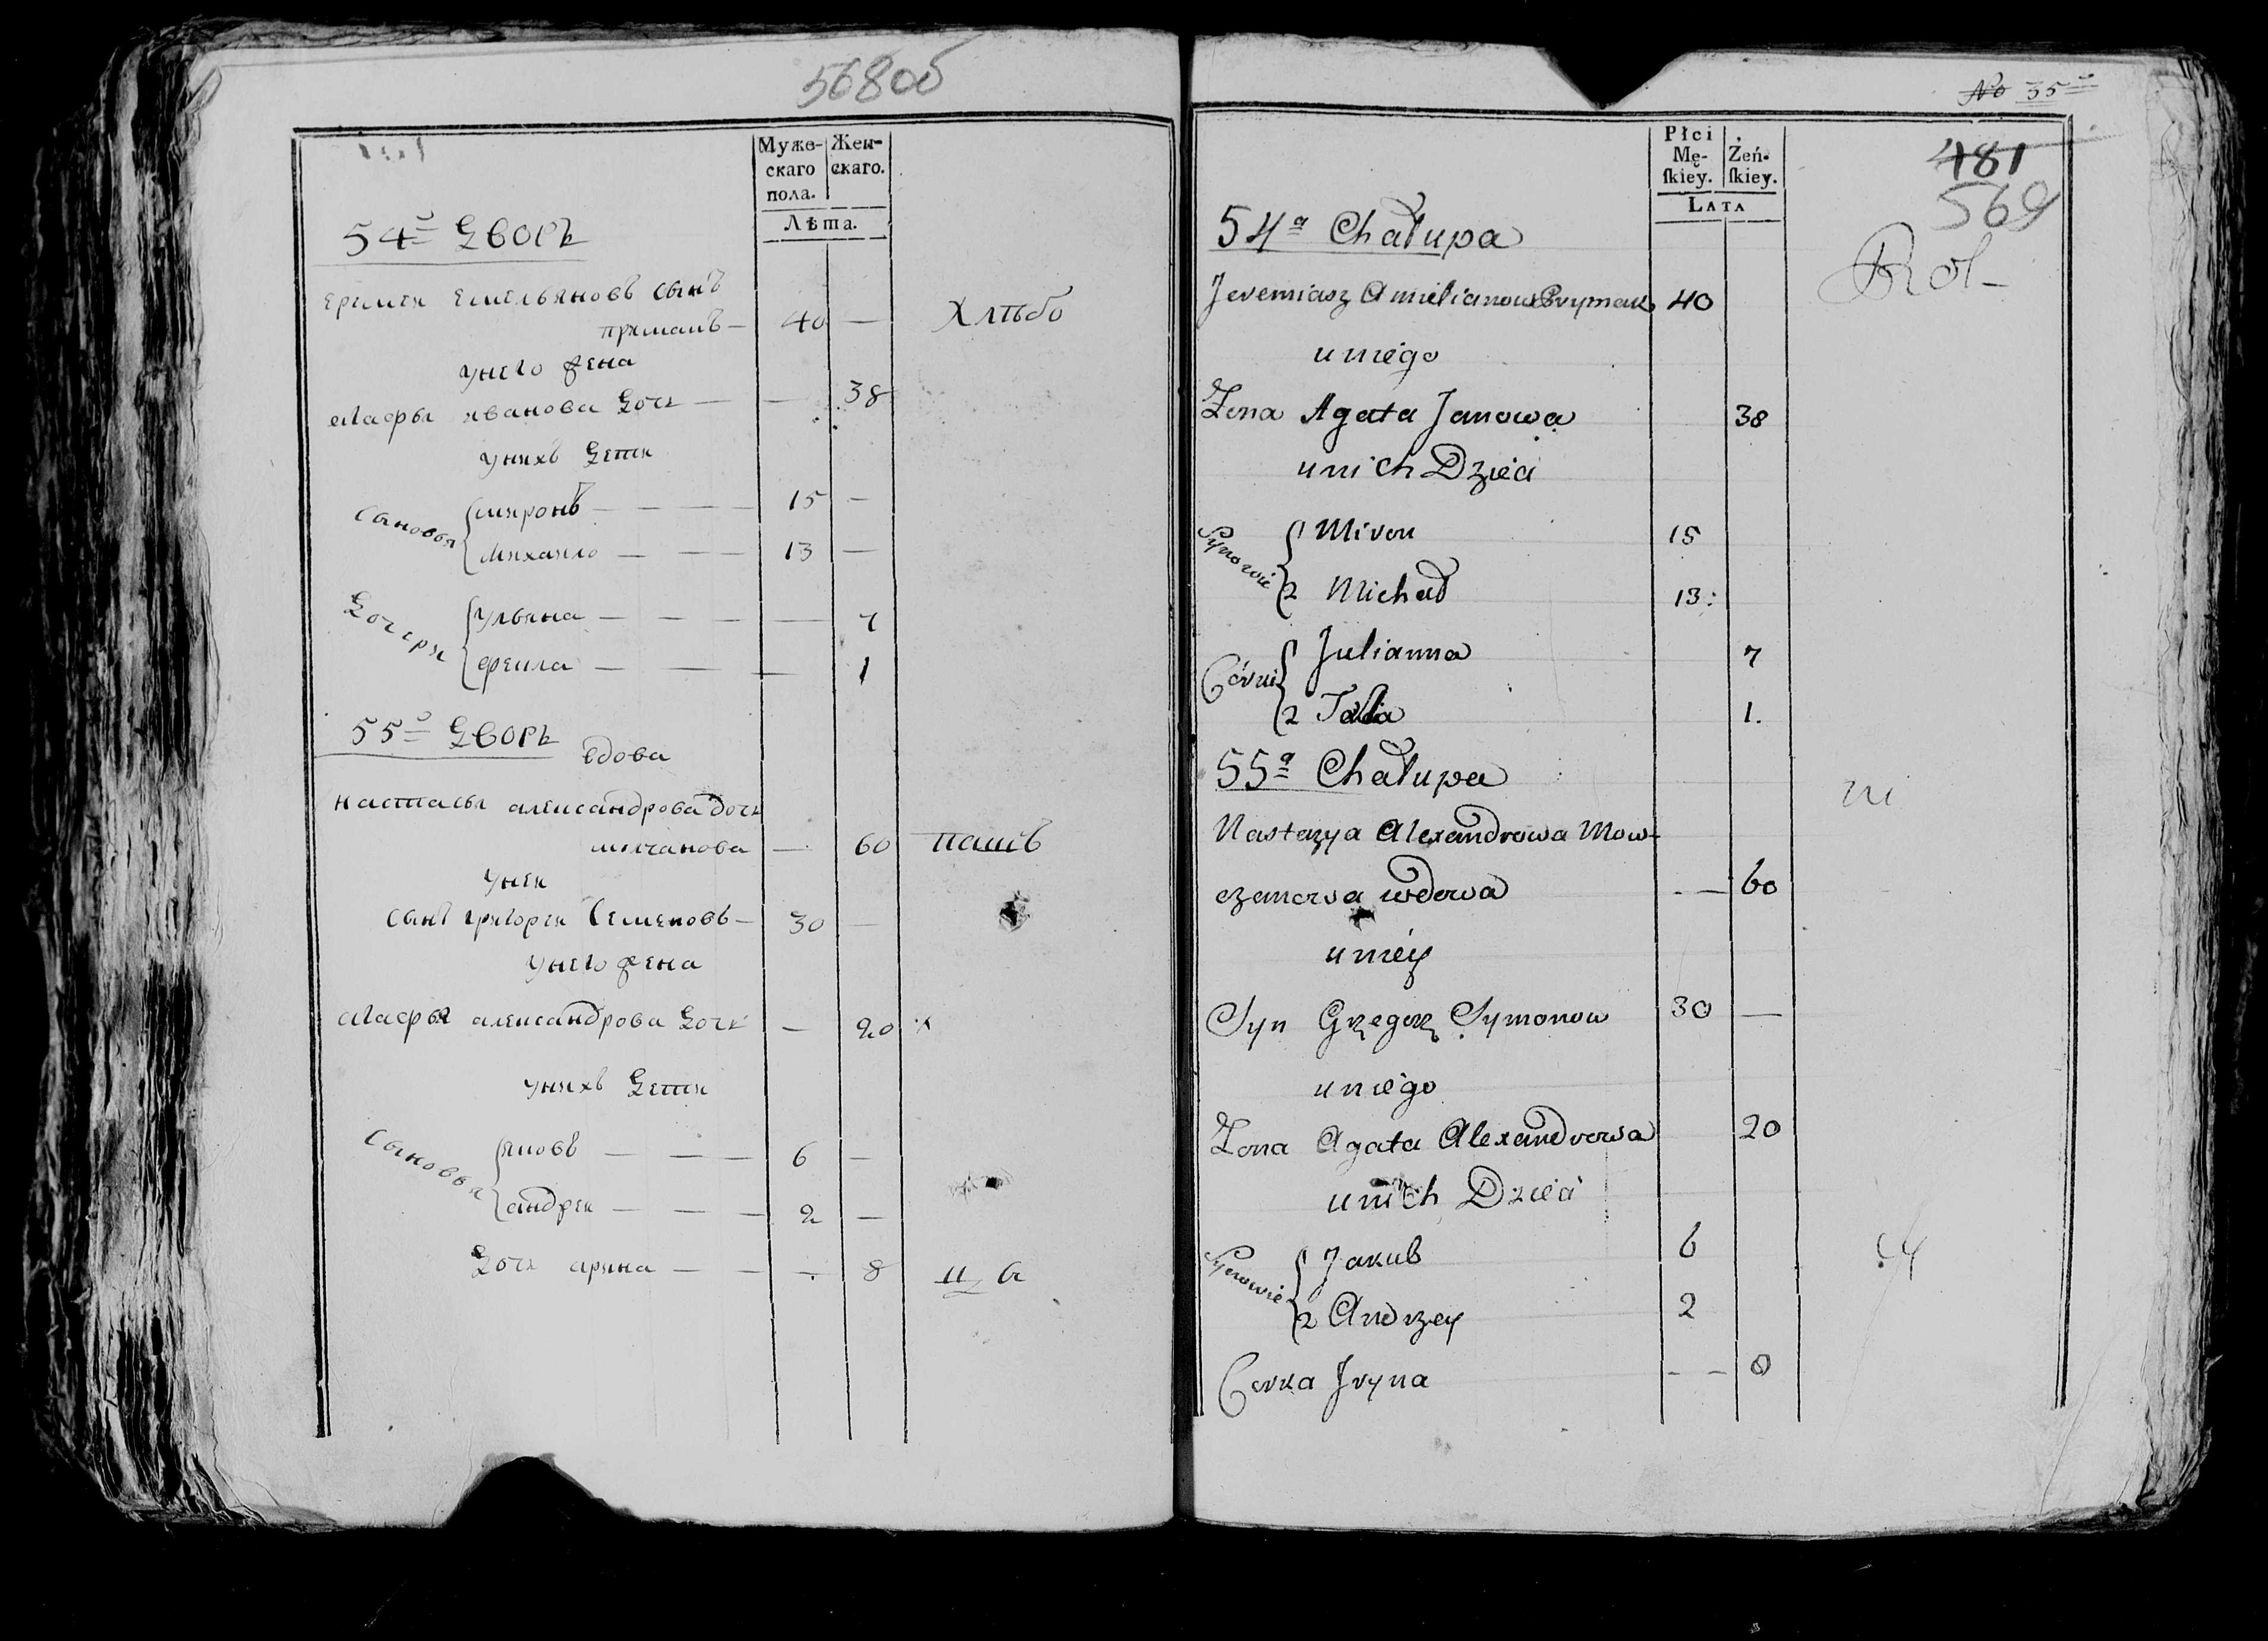 568об
Муже-
скаго
пола.
Жен-
скаго.
Лѣта.
54й Дворъ
Еримеи Емельяновъ сынъ
примакъ — 40 — Хлѣбо
унего жена
Агафья иванова дочь — — 38
унихъ дети
Сыновья миронъ — — — 15 —
михаило — — — 13 —
Дочери ульяна — — — — 7
феила — — — 1
55й Дворъ
вдова
настасья александрова дочь
молчанова — 60 паш
унеи
сынъ григореи Семеновъ — 30 —
унего жена
агафья александрова дочь — 20
унихъ дети
Сыновья яковъ — — — 6 —
андреи — — — 2 —
дочь арина — — — 8
No 35
Płci
Mę-
ſkiey.
Żeń-
ſkiey.
LATA
481
569
54a Chałupa
Rol-
Jeremiasz Amielianow Prymak 40
uniego
Zona Agata Janowa 38
unich Dzieci
Synowie Miron 15
2 Michał 13:
Córki Julianna 7
2 1.
55a Chałupa
Nastazya Alexandrowa Mow-
czanowa wdowa - — 60
unieÿ
Syn Grzegorz Symonow 30 —
uniego
Zona Agata Alexandrowa 20
unich Dzieci
Synowie Jakub 6
2 Andrzeÿ 2
Corka Jryna - — 8